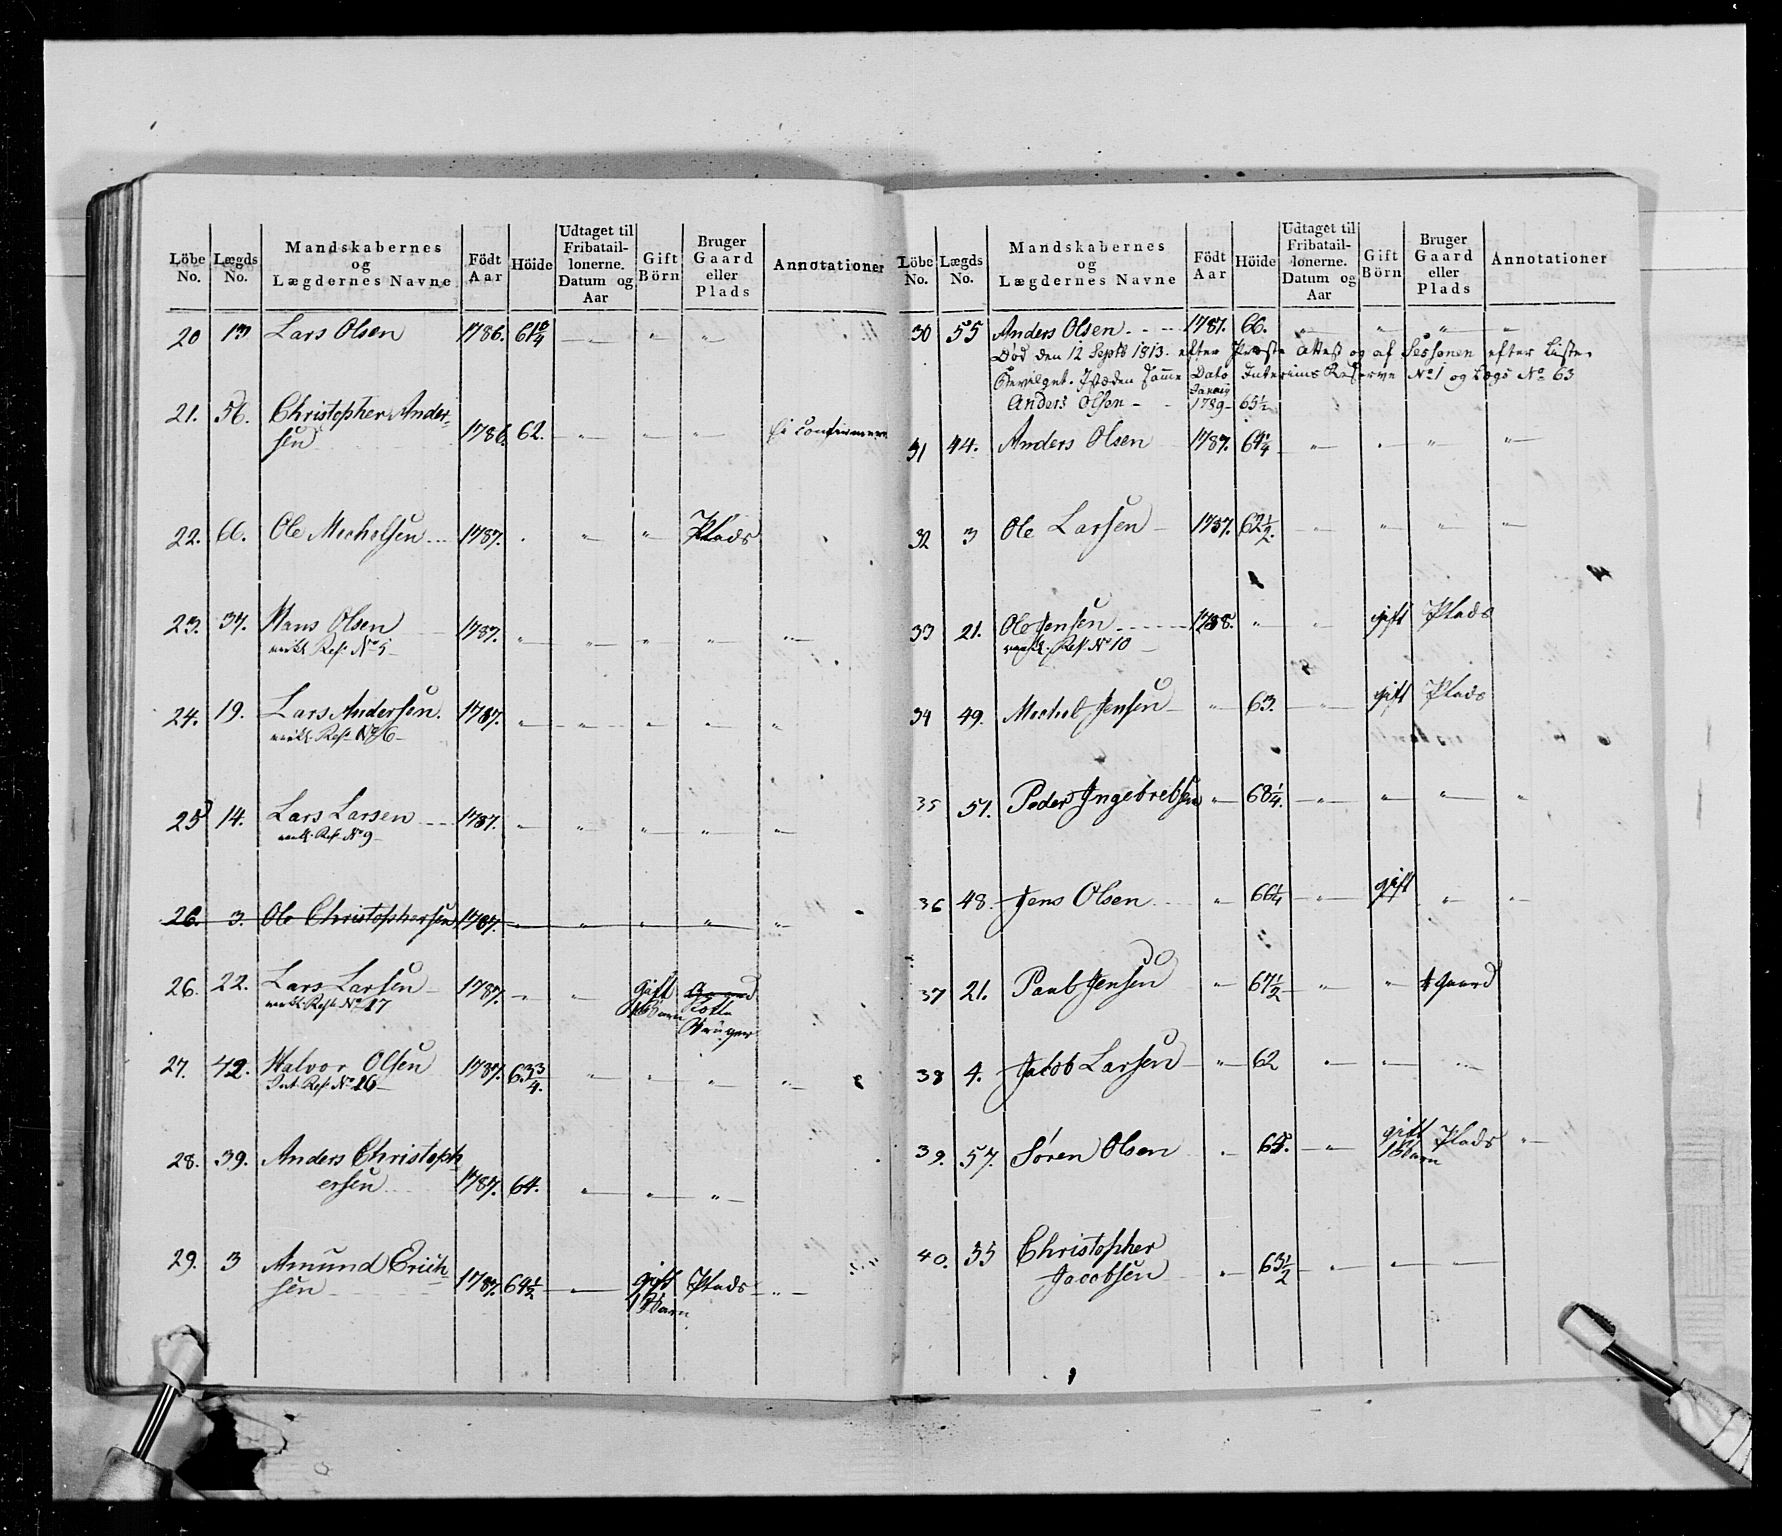 Löbe No. Lægds No. Mandskabernes og Lægdernes Navne Födt Aar Höide Udtaget til Fribatail-lonerne. Datum og Aar Gift Börn Bruger Gaard eller Plads Annotationer
20 13 Lars Olsen 1786. 61 3/4 " " "
21. 56. Christopher Ander-
sen 1786. 62. " " " Ei confirmeret
22. 66. Ole Mechelsen 1787. " " " Plads
23. 37. Hans Olsen 1787. " " " " "
Res. No 5
24. 19. Lars Andersen. 1787. " " " " "
Res. No 6
25 14. Lars Larsen 1787. " " " " "
Res. No 9
26. 3. Ole Christophersen 1787. " " " " "
26. 22. Lars Larsen 1787. " " gift Gaard
Res. No 17 1 Barn
Bruger
27. 42. Halvor Olsen 1787. 63 3/4. " " " "
Int. Res. No 26
28. 39. Anders Christoph
ersen 1787. 64. " " "
29. 3 Amund Erich-
sen 1787. 64 1/2 " gift Plads "
1 Barn
Löbe No. Lægds No. Mandskabernes og Lægdernes Navne Födt Aar Höide Udtaget til Fribatail-lonerne. Datum og Aar Gift Börn Bruger Gaard eller Plads Annotationer
30 55 Anders Olsen 1787. 66. " " " "
Død den 12 Septb 1813. efter Præste Attest og af Sessionen efter Liste
Bevilget. Isteden Samme Dato Interims Reserve No 1 og Lægs No 63
Anders Olsen 1789 65 1/2
31 44. Anders Olsen 1787. 64 1/4 " " " "
32 3 Ole Larsen 1787. 62 1/2. " " " "
33 21. Ole Jensen 1788. " " gift Plads
Res. No 10
34 49. Mechel Jensen " 63. " gift Plads
35 51. Peder Ingebretsen " 68 1/4. " " " "
36 48. Jens Olsen " 66 1/4 " gift " "
37 21. Paul Jensen " 67 1/2 " " 1/2 Gaard
38 4. Jacob Larsen " 62 " " "
39. 57. Sören Olsen " 65. " gift Plads "
1 Barn
40. 35 Christopher
Jacobsen " 63 1/2 " " "